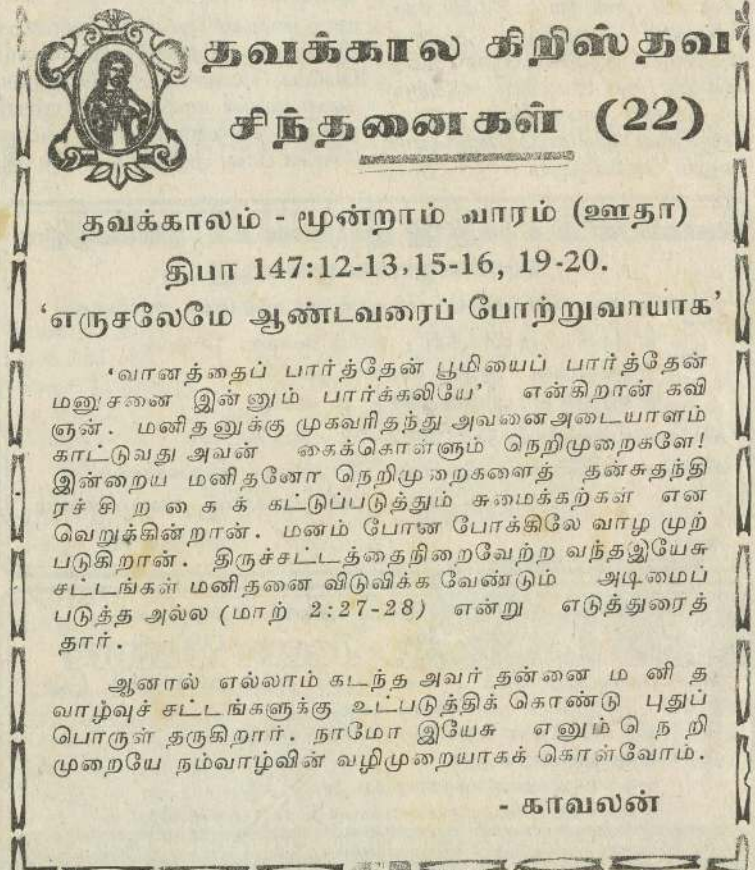 தவக்கால கிறிஸ்தவ
சிந்தனைகள் (22)
தவக்காலம் - மூன்றாம் வாரம் (ஊதா)
திபா 147:12-13,15-16, 19-20.
'எருசலேமே ஆண்டவரைப் போற்றுவாயாக'
'வானத்தைப் பார்த்தேன் பூமியைப் பார்த்தேன்
மனுசனை இன்னும் பார்க்கலியே' என்கிறான் கவி
ஞன். மனிதனுக்கு முகவரிதந்து அவனைஅடையாளம்
காட்டுவது அவன் கைக்கொள்ளும் நெறிமுறைகளே!
இன்றைய மனிதனோ நெறிமுறைகளைத் தன்சுதந்தி
ரச்சிறகைக் கட்டுப்படுத்தும் சுமைக்கற்கள் என
வெறுக்கின்றான். மனம் போன போக்கிலே வாழ முற்
படுகிறான். திருச்சட்டத்தைநிறைவேற்ற வந்தஇயேசு
சட்டங்கள் மனிதனை விடுவிக்க வேண்டும் அடிமைப்
படுத்த அல்ல (மாற் 2:27-28) என்று எடுத்துரைத்
தார்.
ஆனால் எல்லாம் கடந்த அவர் தன்னை மனித
வாழ்வுச் சட்டங்களுக்கு உட்படுத்திக் கொண்டு புதுப்
பொருள் தருகிறார். நாமோ இயேசு எனும் நெறி
முறையே நம்வாழ்வின் வழிமுறையாகக் கொள்வோம்.
- காவலன்